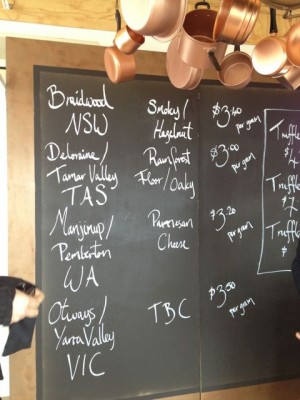 Braidwood
NSW
Smoky/
Hazelnut
$3.40
per gram
Deloraine/
Tamar Valley
TAS
Rainforest
Floor/Oaky
$3.00
per gram
Manjimup/
Pemberton
WA
Parmesan
Cheese
$3.20
per gram
Otways/
Yarra Valley
VIC
TBC
$3.50
per gram
Truffle
Truffle
$7
Truffle
$